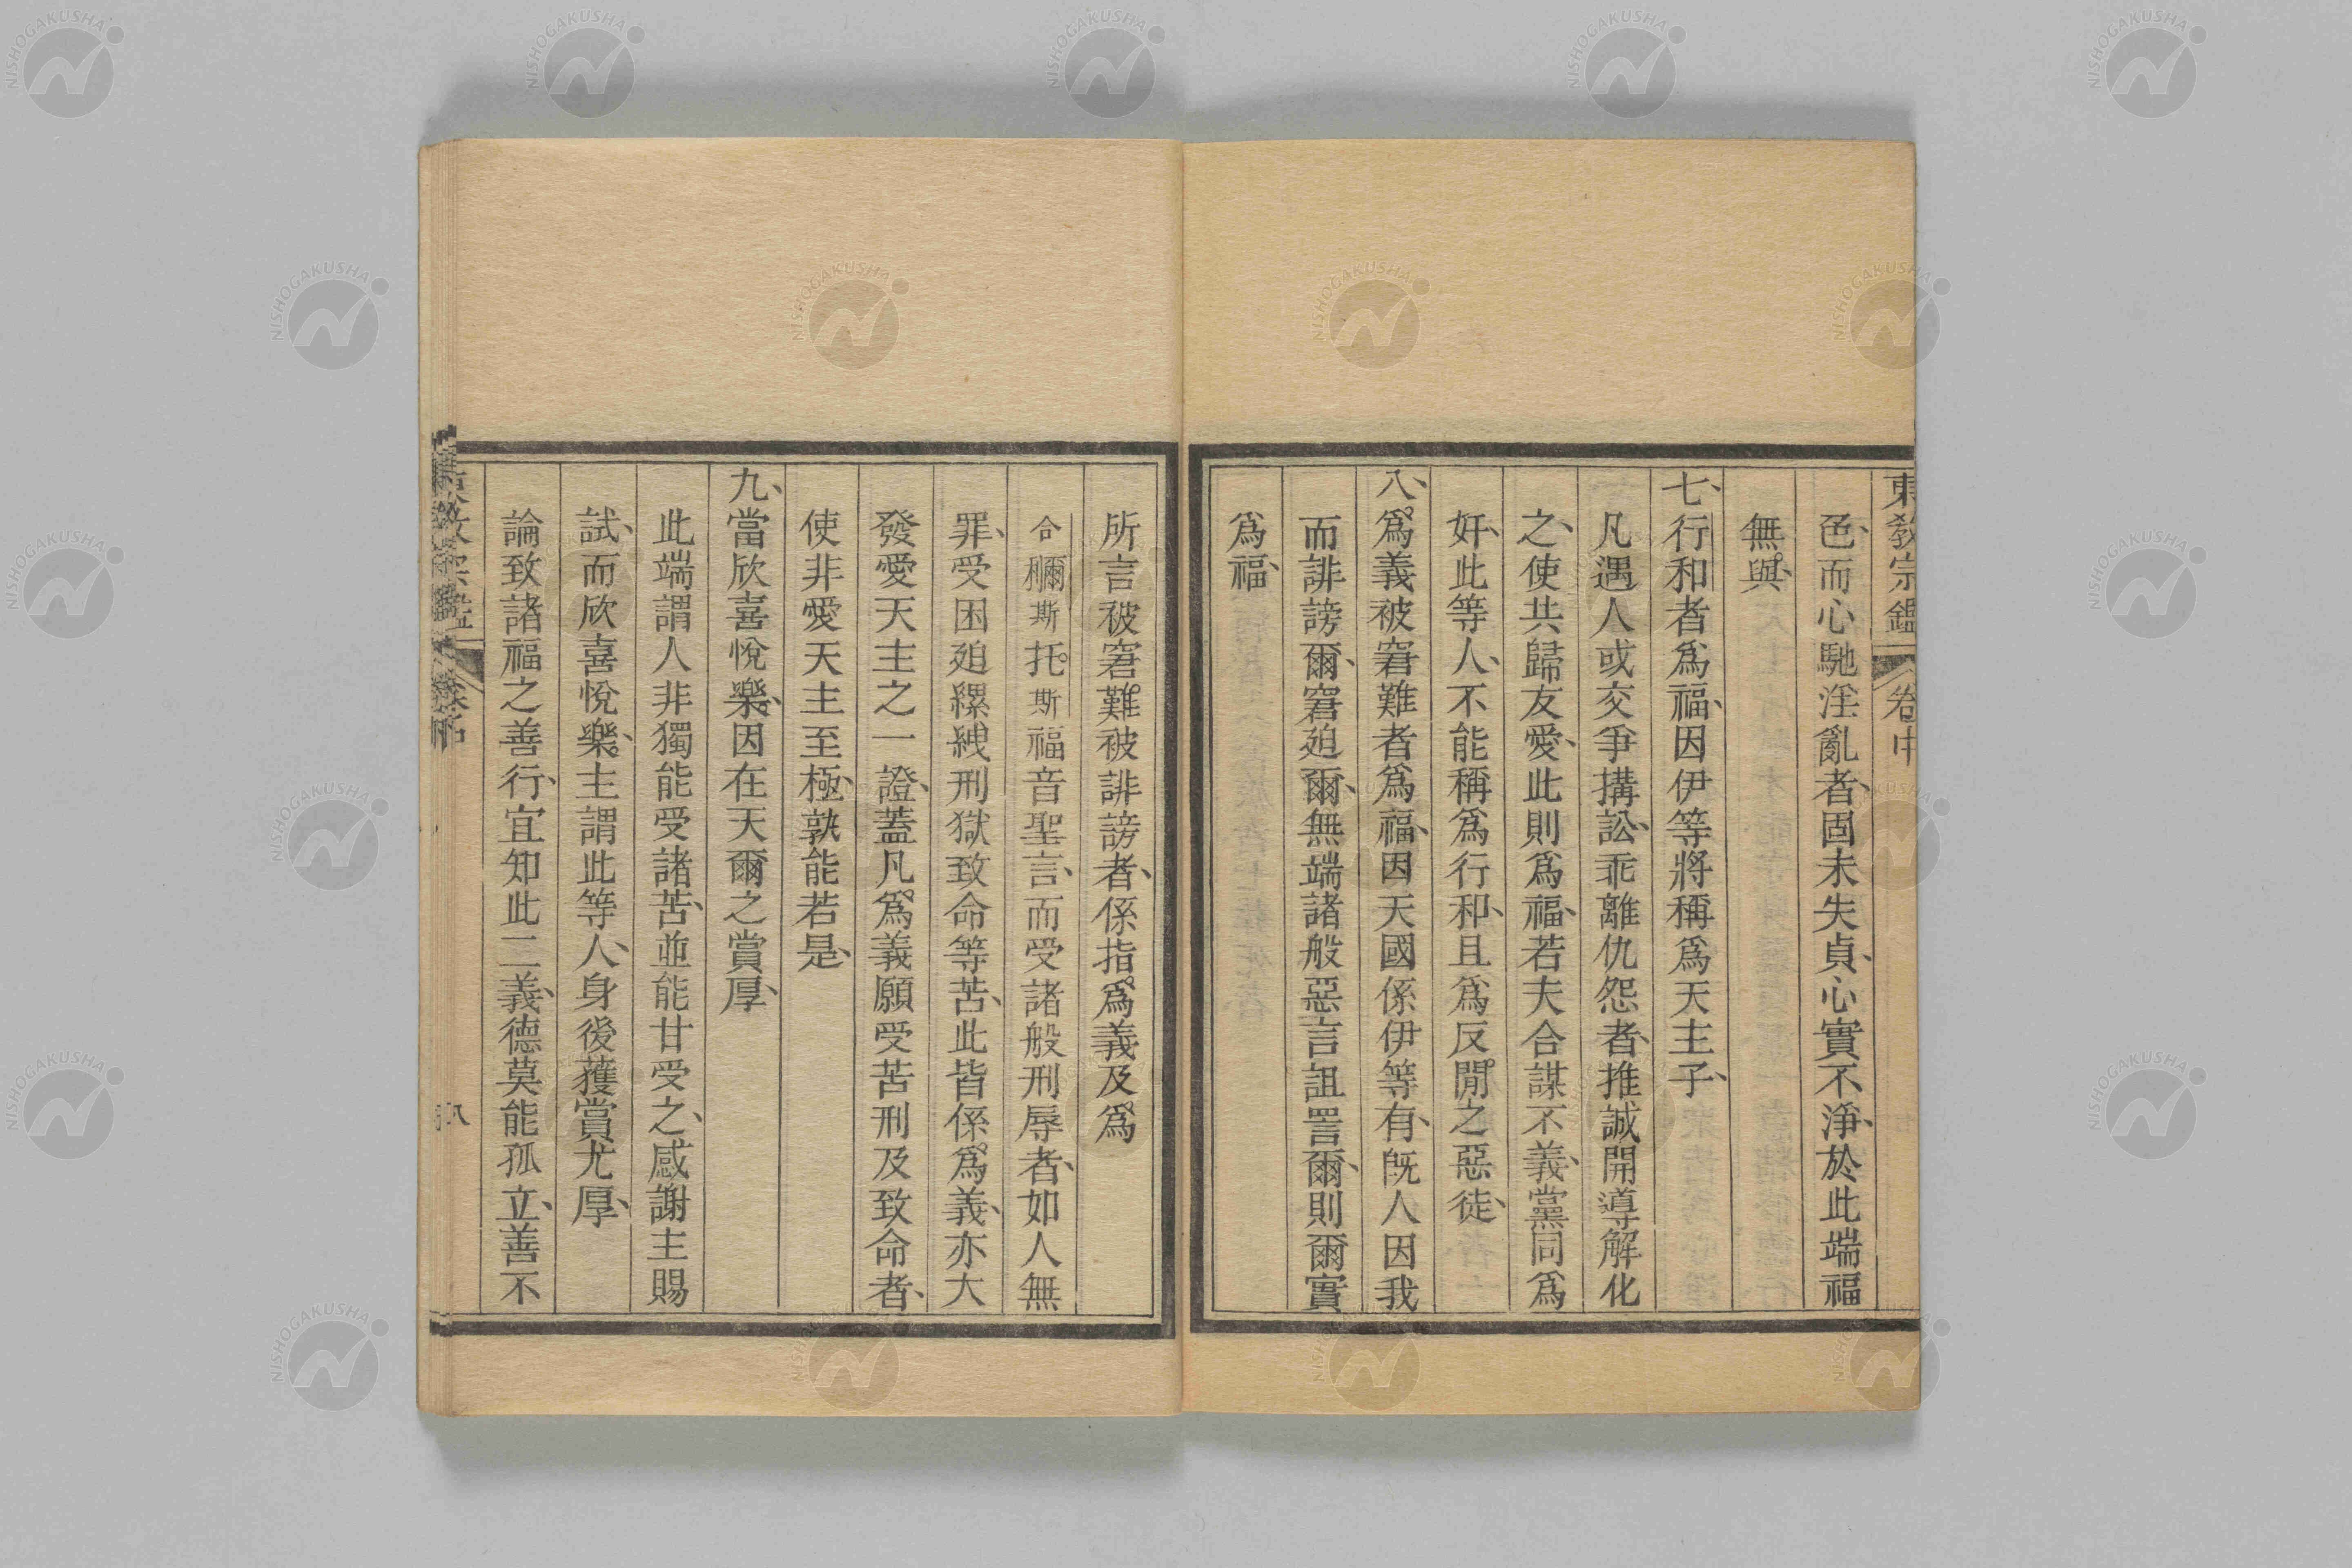 東教宗鑑 卷中
色、而心馳淫亂者、固未失貞、心實不淨、於此端福
無與、
七、行和者爲福、因伊等將稱爲天主子、
凡遇人或交爭搆訟、乖離仇怨者、推誠開導解化
之、使共歸友愛、此則爲福、若夫合謀不義、黨同爲
奸、此等人、不能稱爲行和、且爲反閒之惡徒、
八、爲義被窘難者爲福、因天國係伊等有、旣人因我
而誹謗爾、窘廹爾、無端諸般惡言詛詈爾、則爾實
爲福、
所言被窘難被誹謗者、係指爲義及爲
合穪斯托斯福音聖言、而受諸般刑辱者、如人無
罪、受困廹縲絏刑獄致命等苦、此皆係爲義、亦大
發愛天主之一證、蓋凡爲義願受苦刑及致命者、
使非愛天主至極、孰能若是、
九、當欣喜悅樂、因在天爾之賞厚、
此端謂人非獨能受諸苦、並能甘受之、感謝主賜
試、而欣喜悅樂、主謂此等人、身後獲賞尤厚、
論致諸福之善行、宜知此二義、德莫能孤立、善不
八
NISHOGAKUSHA